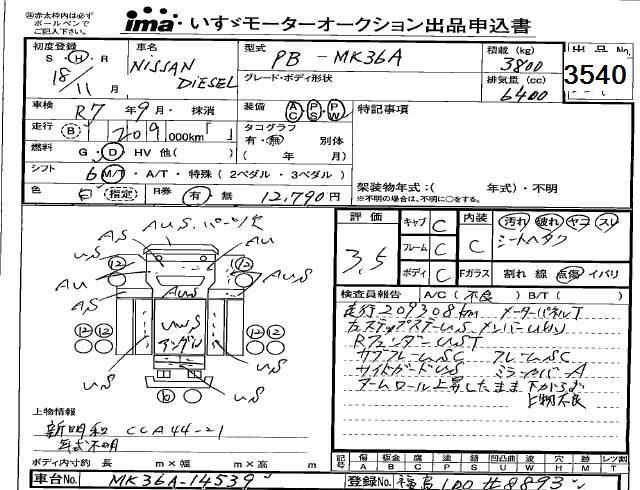 ㊟赤太枠内は必ず
ボールペンで
ご記入下さい。
ima いすゞモーターオークション出品申込書
初度登録
S・H・R
18/11月
車名
NISSAN DIESEL
型式
PB-MK36A
グレード・ボディ形状
積載(kg)
3800
排気量(cc)
6400
出品No.
3540
車検 R7年9月・抹消
装備 AC PS PW
特記事項
走行 B 209,000km「 」
タコグラフ
有・無 別体
( 年 月)
燃料 G・D・HV 他( )
シフト 6 M/T・A/T・特殊(2ペダル・3ペダル)
色 白 指定 R券 有・無 12,790円
架装物年式:( 年式)・不明
※不明の場合は、不明に○をする。
評価 3.5
キャブ C
フレーム C
ボディ C
内装 C 汚れ 破れ ヤニ スレ
シートヘタリ
Fガラス 割れ 線 点傷 イバリ
検査員報告 A/C(不良) B/T( )
走行209308km メーターパネルT
カステップステーUS メンバーUW
RフェンダーUST
サブフレームSC フレームSC
サイドガードUS ミラーカバーA
アームロール上昇したまま下がらず
上物不良
AUS.パーツ欠
AS
AU
US
12
12
AU
AU
AUS
AS
AUS
12
12
UWS
アンダU
12
12
US
US
6
上物情報
新明和 CCA44-21
年式不明
ボディ内寸約 長 m×幅 m×高 m
記号
傷 A
板金 B
腐 C
塗 P
錆 S
凹凸曲 U
波 W
穴 H
跡 M
レツ割 T
車台No. MK36A-14539
登録No. 福島100せ8893